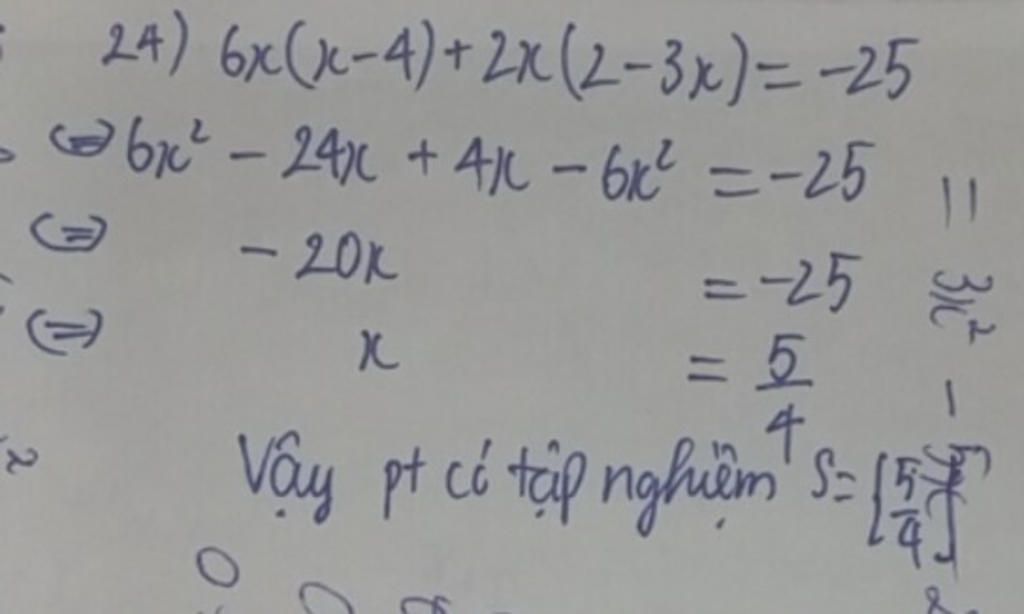 24) 6x(x-4)+2x(2-3x)=-25
(=) 6x² - 24x + 4x - 6x² = -25
(=) - 20x = -25
(=) x = 5/4
Vậy pt có tập nghiệm S={5/4}
= 3x² -